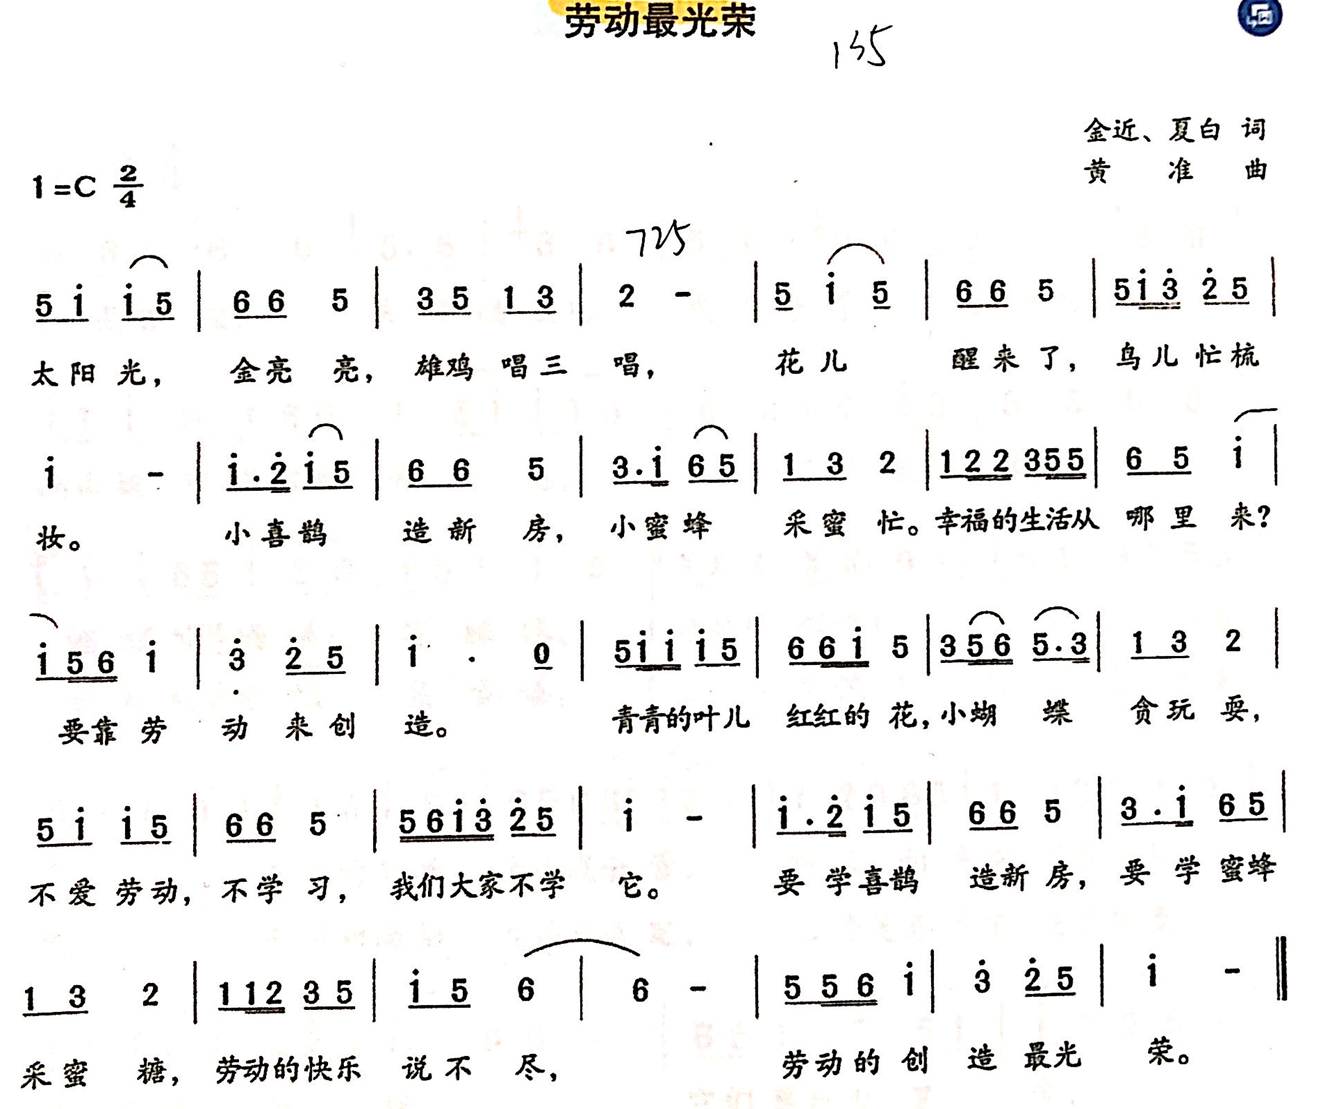 劳动最光荣
135
金近、夏白 词
1=C 2/4
黄 准 曲
725
5 i̇ i̇ 5 | 6 6 5 | 3 5 1 3 | 2 - | 5 i̇ 5 | 6 6 5 | 5 i̇ 3̇ 2̇ 5 |
太阳光, 金亮亮, 雄鸡唱三唱, 花儿 醒来了, 鸟儿忙梳
i̇ - | i̇ . 2̇ i̇ 5 | 6 6 5 | 3 . i̇ 6 5 | 1 3 2 | 1 2 2 3 5 5 | 6 5 i̇ |
妆。 小喜鹊 造新房, 小蜜蜂 采蜜忙。幸福的生活从 哪里来?
i̇ 5 6 i̇ | 3̇ 2̇ 5 | i̇ . 0 | 5 i̇ i̇ i̇ 5 | 6 6 i̇ 5 | 3 5 6 5 . 3 | 1 3 2 |
要靠劳 动来创 造。 青青的叶儿 红红的花, 小蝴蝶 贪玩耍,
5 i̇ i̇ 5 | 6 6 5 | 5 6 i̇ 3̇ 2̇ 5 | i̇ - | i̇ . 2̇ i̇ 5 | 6 6 5 | 3 . i̇ 6 5 |
不爱劳动, 不学习, 我们大家不学 它。 要学喜鹊 造新房, 要学蜜蜂
1 3 2 | 1 1 2 3 5 | i̇ 5 6 | 6 - | 5 5 6 i̇ | 3̇ 2̇ 5 | i̇ - ‖
采蜜糖, 劳动的快乐 说不尽, 劳动的创 造最光 荣。